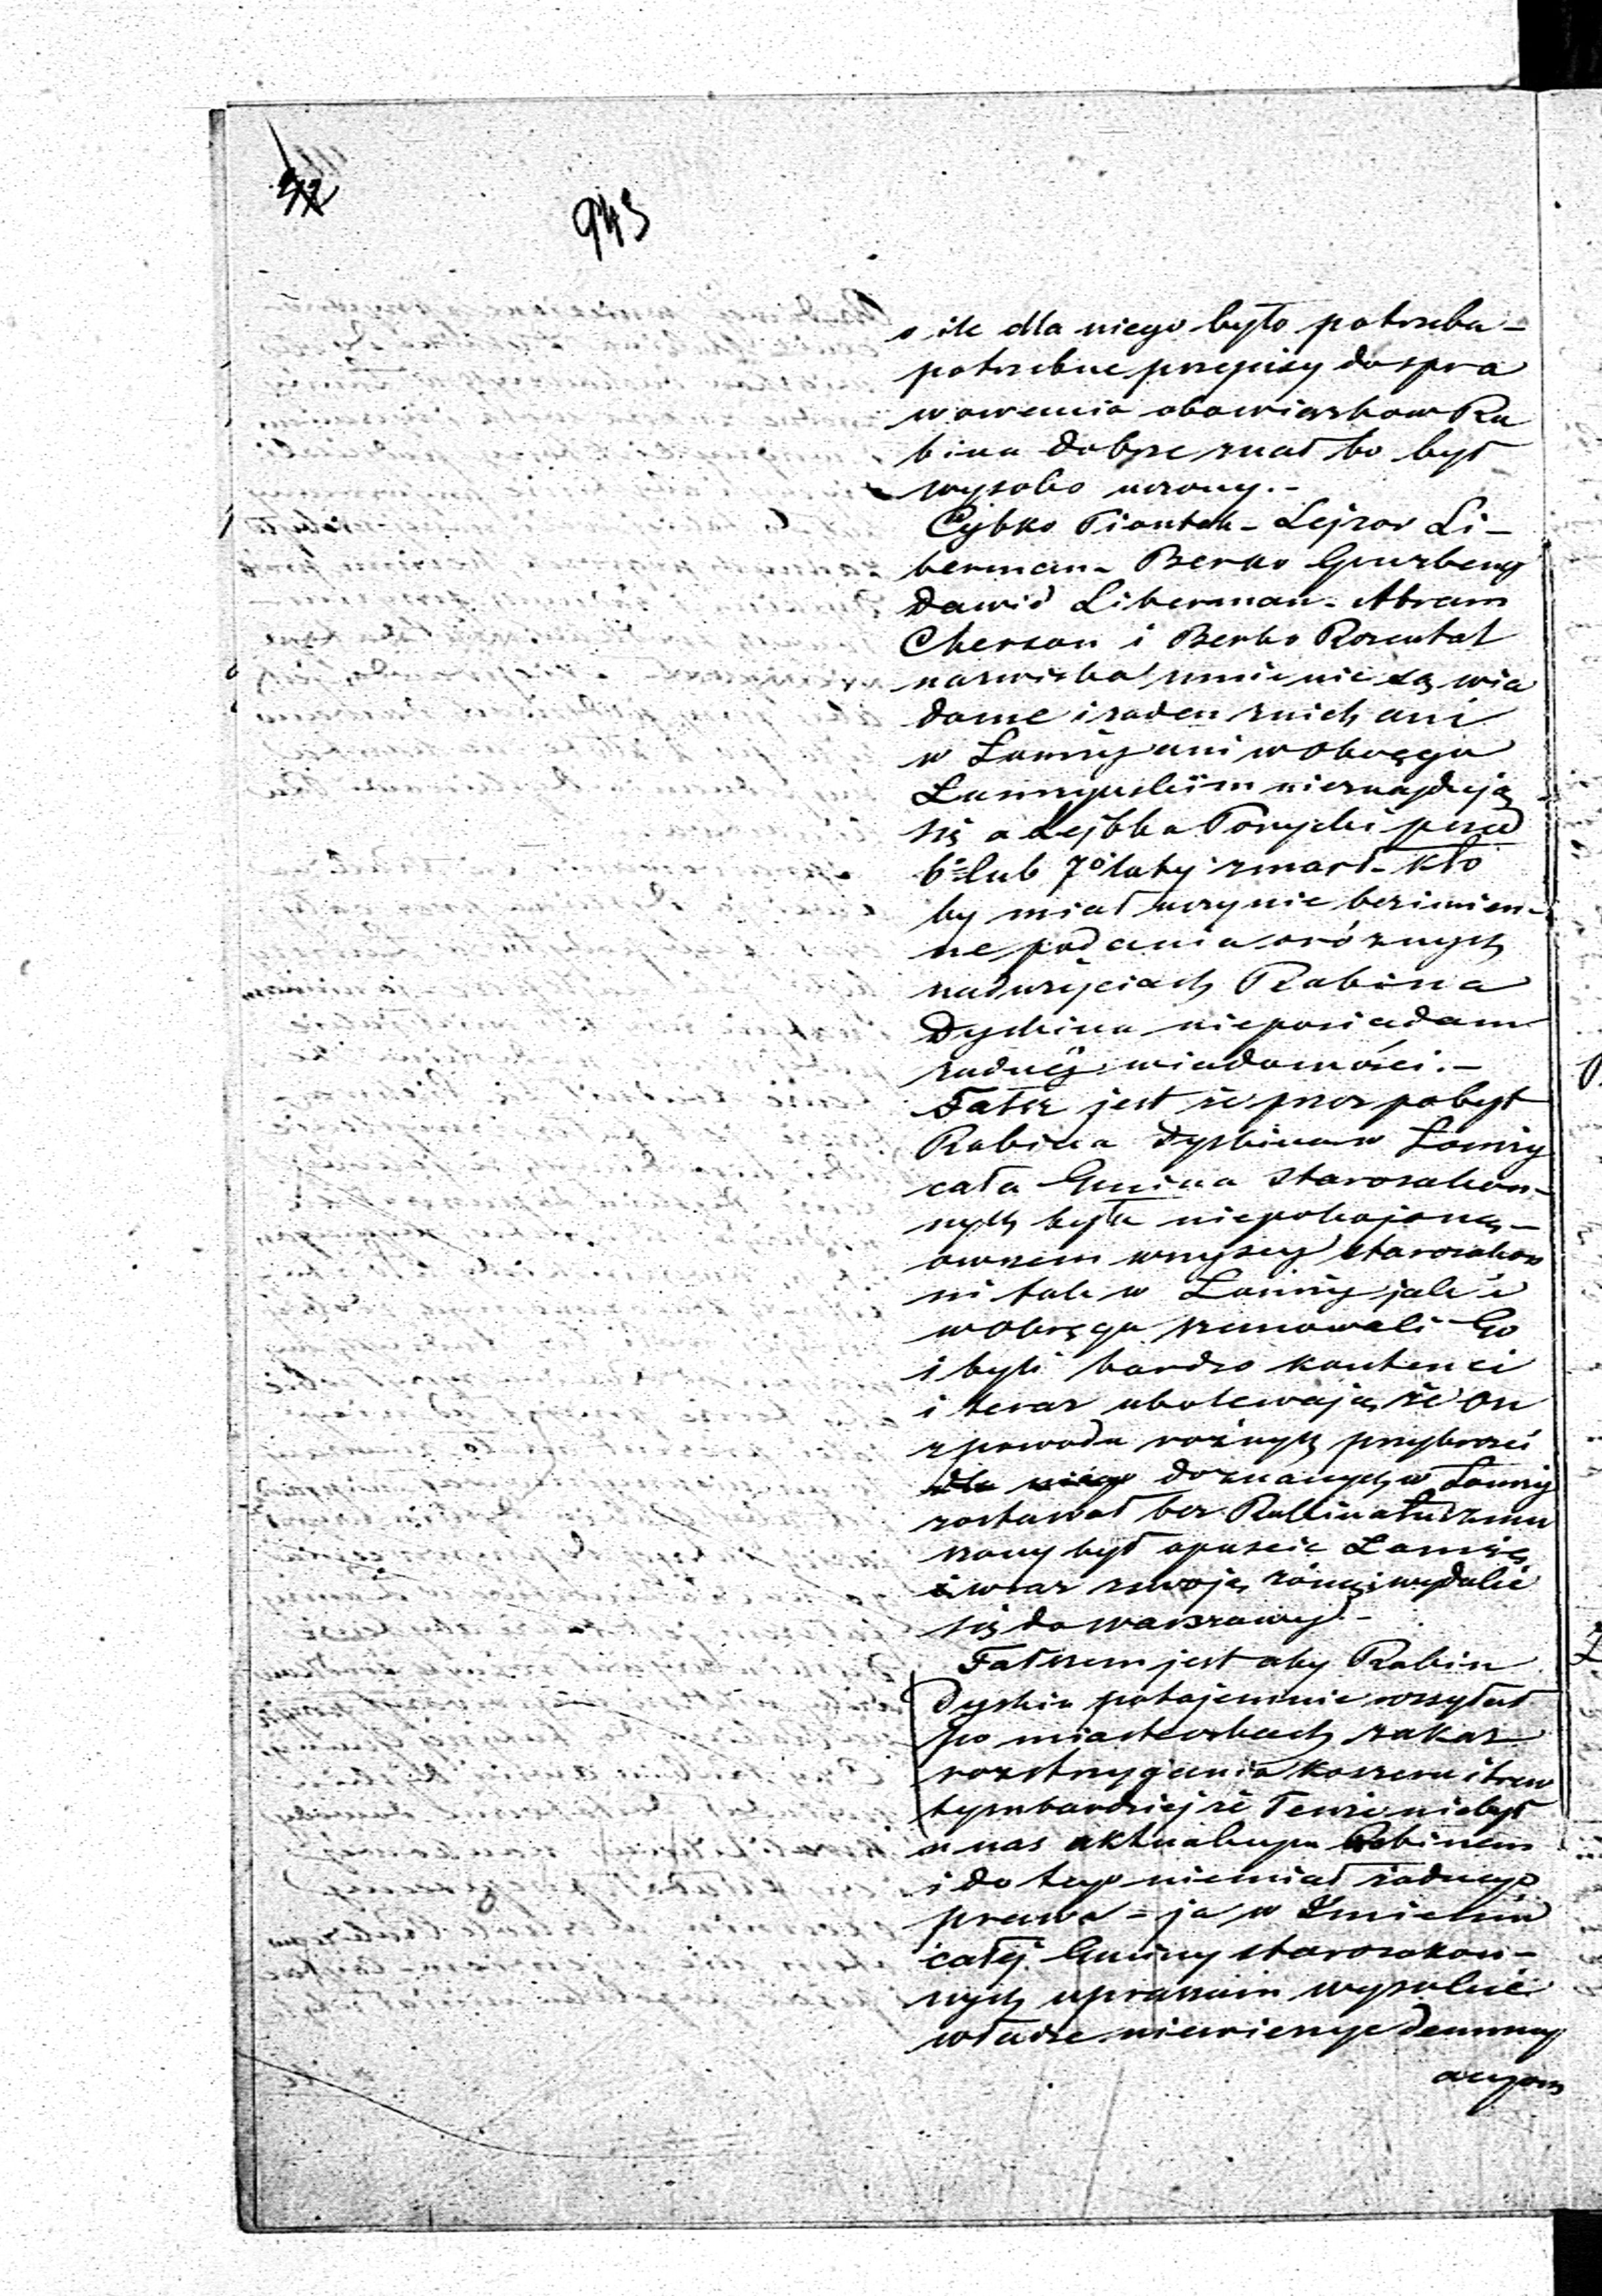 943
o ile dla niego było potrzeba –
potrzebne przepisy do spra
wowania obowiązkow Ra
bina dobrze znał bo był
wysoko uczony. –
Cybko Piontek – Lejzor Li–
berman – Berko Gurzberg
Dawid Liberman – Abram
Cherson i Berko Rozental
nazwiska mnie nie są wia
dome i żaden z nich ani
w Łomży ani w Okręgu
Łomżyńskim nieznajdują
się a Lejbka przed
6 lub 7 laty zmarł – kto
by miał uczynic bezimien–
ne podania o różnych
nadużyciach Rabina
Dyskina nieposiadam
żadnej wiadomości. –
Fałsz jest że przez pobyt
Rabina Dyskina w Łomży
cała Gmina Starozakon–
nych była niepokojoną –
owszem wszyscy starozakon
ni tak w Łomży jak i
w Okręgu szanowali Go
i byli bardzo kontenci
i teraz ubolewają że on
z powodu rożnych przykrości
doznanych w Łomży
zostawał bez Rabinatu zmu
szony był opuscic Łomżę
i wraz z swoją żoną wydalić
się do Warszawy. –
Fałszem jest aby Rabin
Dyskin potajemnie rozsyłał
po miasteczkach zakaz
rozstrzygania koszeru i tref
tymbardziej że Tenże niebył
u nas aktualnym Rabinem
i do tego niemiał żadnego
prawa = ja w Imieniu
całej Gminy starozakon–
nych upraszam wysokie
władze niewierzyc